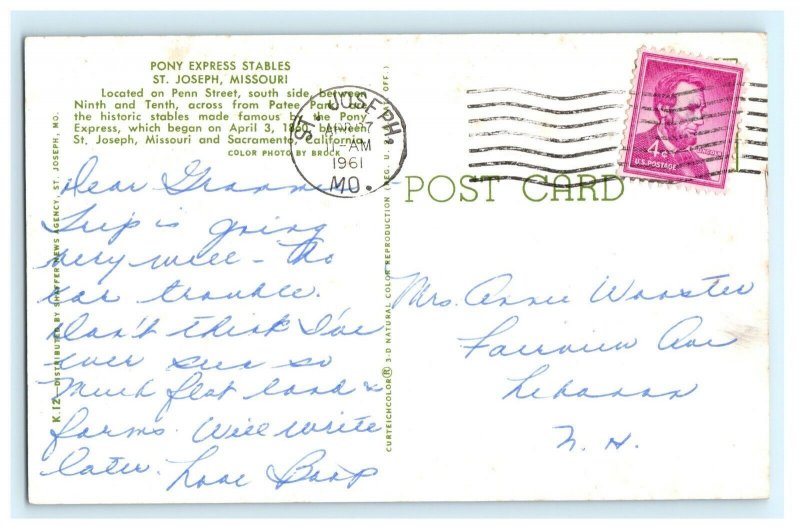 PONY EXPRESS STABLES
ST. JOSEPH, MISSOURI
Located on Penn Street, south side, between
Ninth and Tenth, across from Patee Park, are
the historic stables made famous by the Pony
Express, which began on April 3, 1860, between
St. Joseph, Missouri and Sacramento, California.
COLOR PHOTO BY BROCK
Dear Gramma -
Trip is going
very well - No
car trouble.
Don't think I've
ever seen so
much flat land &
farms. Will write
later. Love Boop
K.12—DISTRIBUTED BY SHAFFER NEWS AGENCY, ST. JOSEPH, MO.
CURTEICHCOLOR® 3-D NATURAL COLOR REPRODUCTION (REG. U.S.A. PAT. OFF.)
ST. JOSEPH,
APR 27
-AM
1961
MO.
4¢
U.S. POSTAGE
POST CARD
Mrs. Annie Wooster
Fairview Ave
Lebanon
N. H.